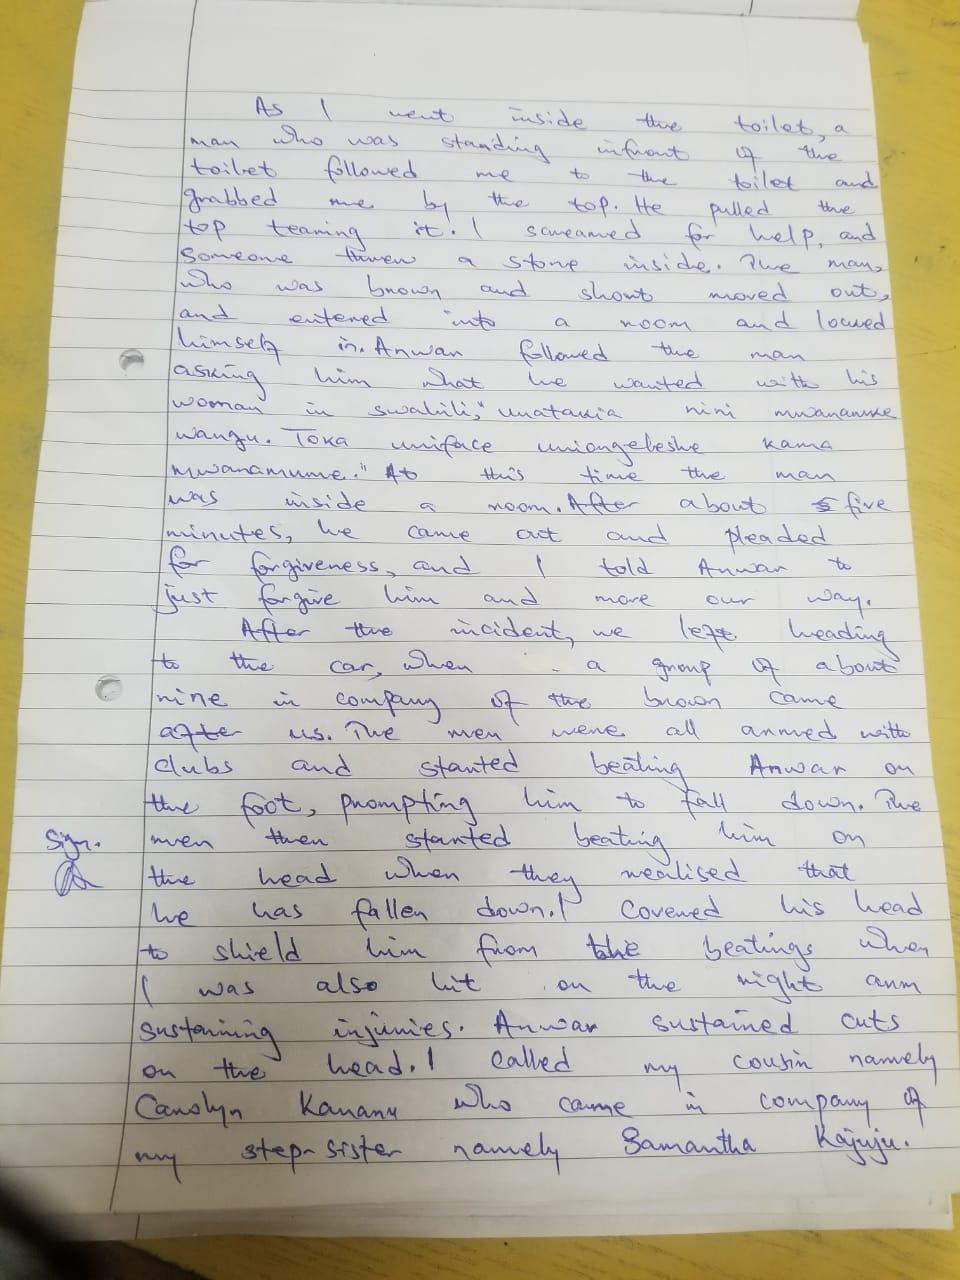 As I went inside the toilet, a
man who was standing infront of the
toilet followed me to the toilet and
grabbed me by the top. He pulled the
top tearing it. I screamed for help, and
someone threw a stone inside. The man,
who was brown and short moved out,
and entered into a room and locked
himself in. Anwar followed the man
asking him what he wanted with his
woman in swahili, "unatakia nini mwanamke
wangu. Toka uniface uniongeleshe kama
mwanamume." At this time the man
was inside a room. After about five
minutes, he came out and pleaded
for forgiveness, and I told Anwar to
just forgive him and move our way.
After the incident, we left heading
to the car, when a group of about
nine in company of the brown came
after us. The men were all armed with
clubs and started beating Anwar on
the foot, prompting him to fall down. The
Sign.
men then started beating him on
the head when they realised that
he has fallen down. I covered his head
to shield him from the beatings when
I was also hit on the right arm
sustaining injuries. Anwar sustained cuts
on the head. I called my cousin namely
Carolyn Kananu who came in company of
my step-sister namely Samantha Kajuju.